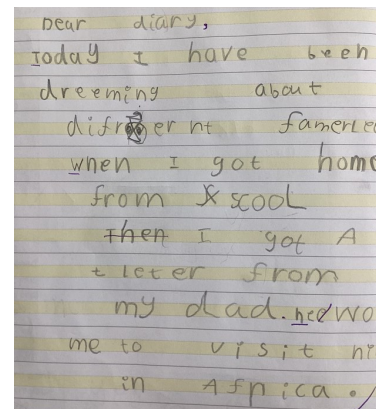 Dear diary,
Today I have been
dreeming about
difrernt famerlee
when I got home
from scool
then I got A
leter from
my dad. hed wo
me to visit hi
in Africa.